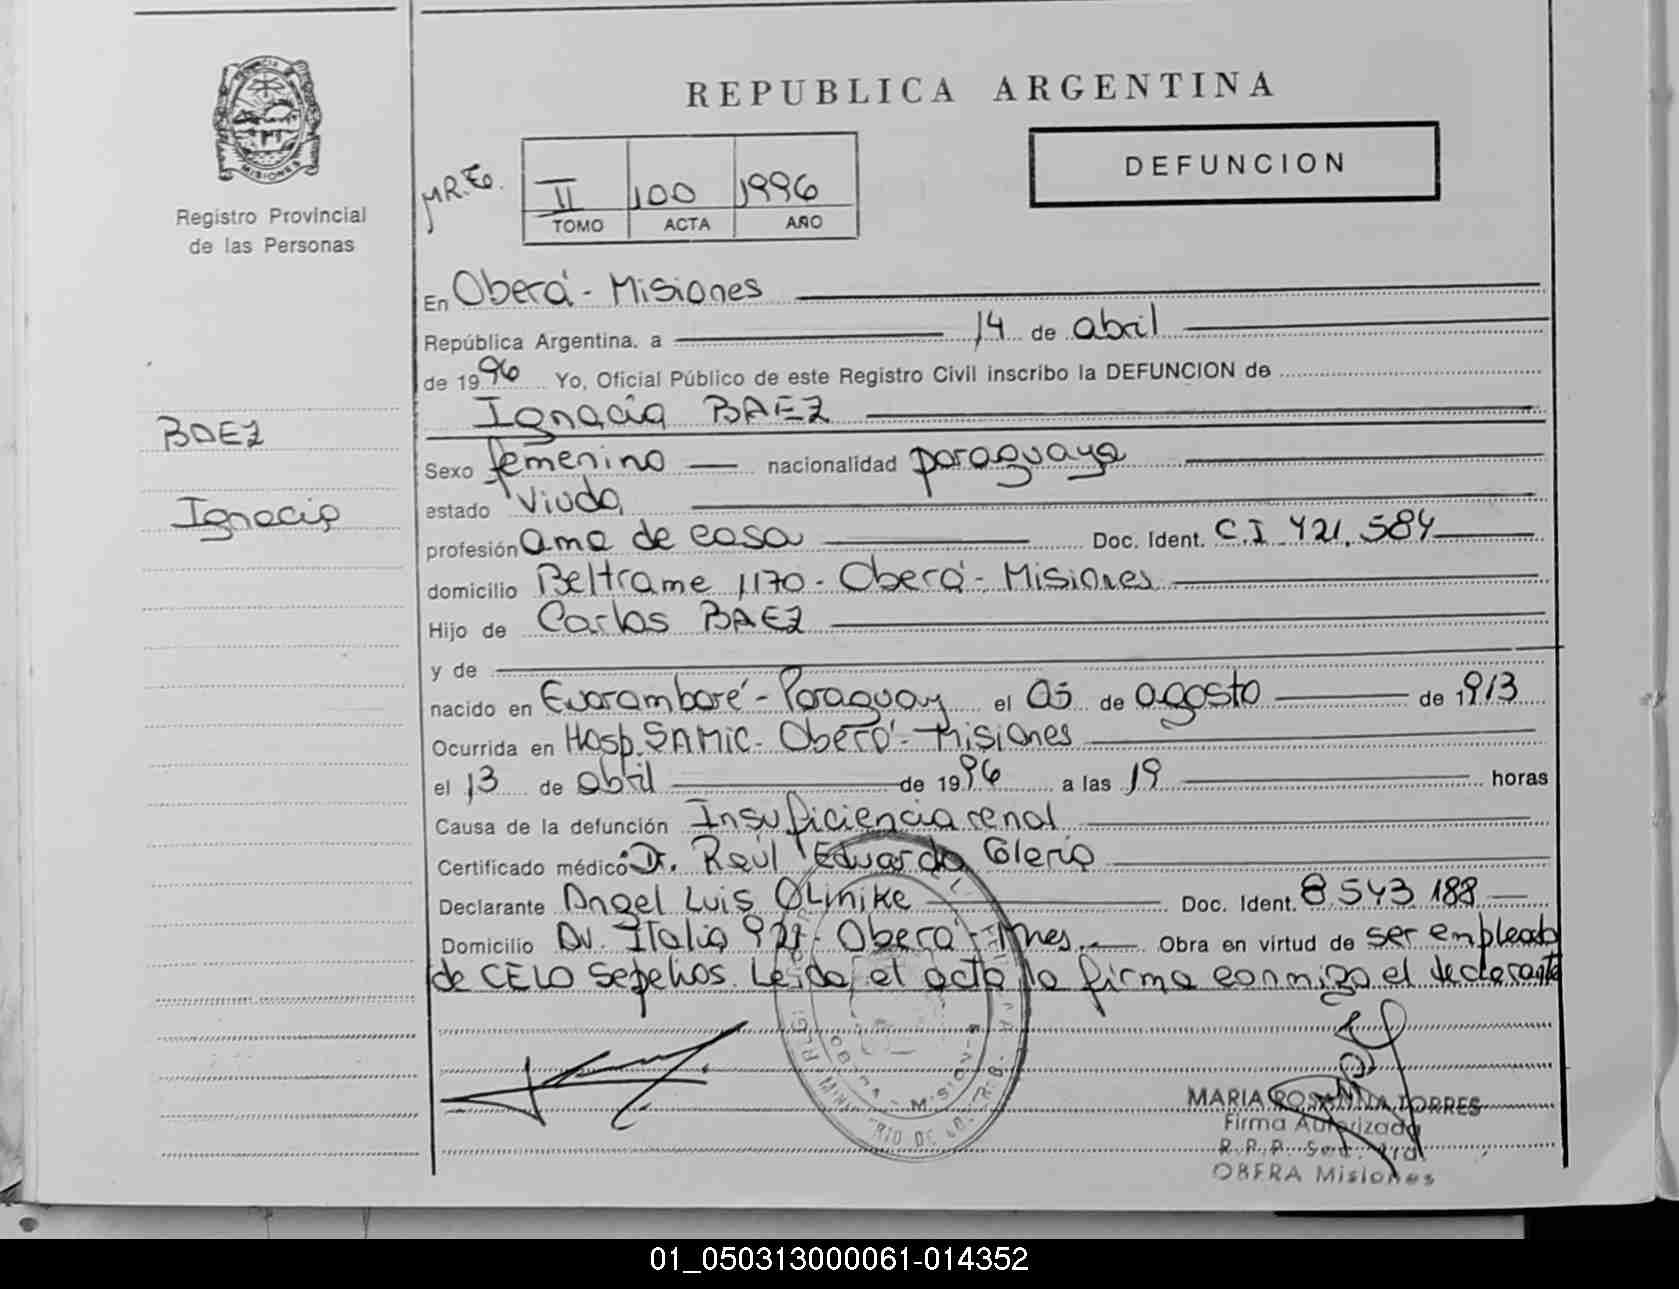 REPUBLICA ARGENTINA
PROVINCIA DE MISIONES
Registro Provincial
de las Personas
II 100 1996
TOMO ACTA AÑO
DEFUNCION
En Oberá - Misiones
República Argentina, a 14 de abril
de 1996 Yo, Oficial Público de este Registro Civil inscribo la DEFUNCION de
Ignacia BAEZ
BAEZ
Ignacia
Sexo femenino nacionalidad paraguaya
estado viuda
profesión ama de casa Doc. Ident. C.I 421.584
domicilio Beltrame 1170 - Oberá - Misiones
Hijo de Carlos BAEZ
y de
nacido en Guarambaré - Paraguay el 05 de agosto de 1913
Ocurrida en Hosp. SAMIC - Oberá - Misiones
el 13 de abril de 1996 a las 19 horas
Causa de la defunción Insuficiencia renal
Certificado médico Dr. Raúl Eduardo
Declarante Angel Luis OLINIKE Doc. Ident. 8 543 188
Domicilio Av. Italia 921 - Oberá - Mnes. Obra en virtud de ser empleado
de CELO Sepelios. Leida el acta la firma conmigo el declarante
OBERA - MISIONES
MARIA ROSANNA TORRES
Firma Autorizada
R.P.P.
OBERA Misiones
01_050313000061-014352